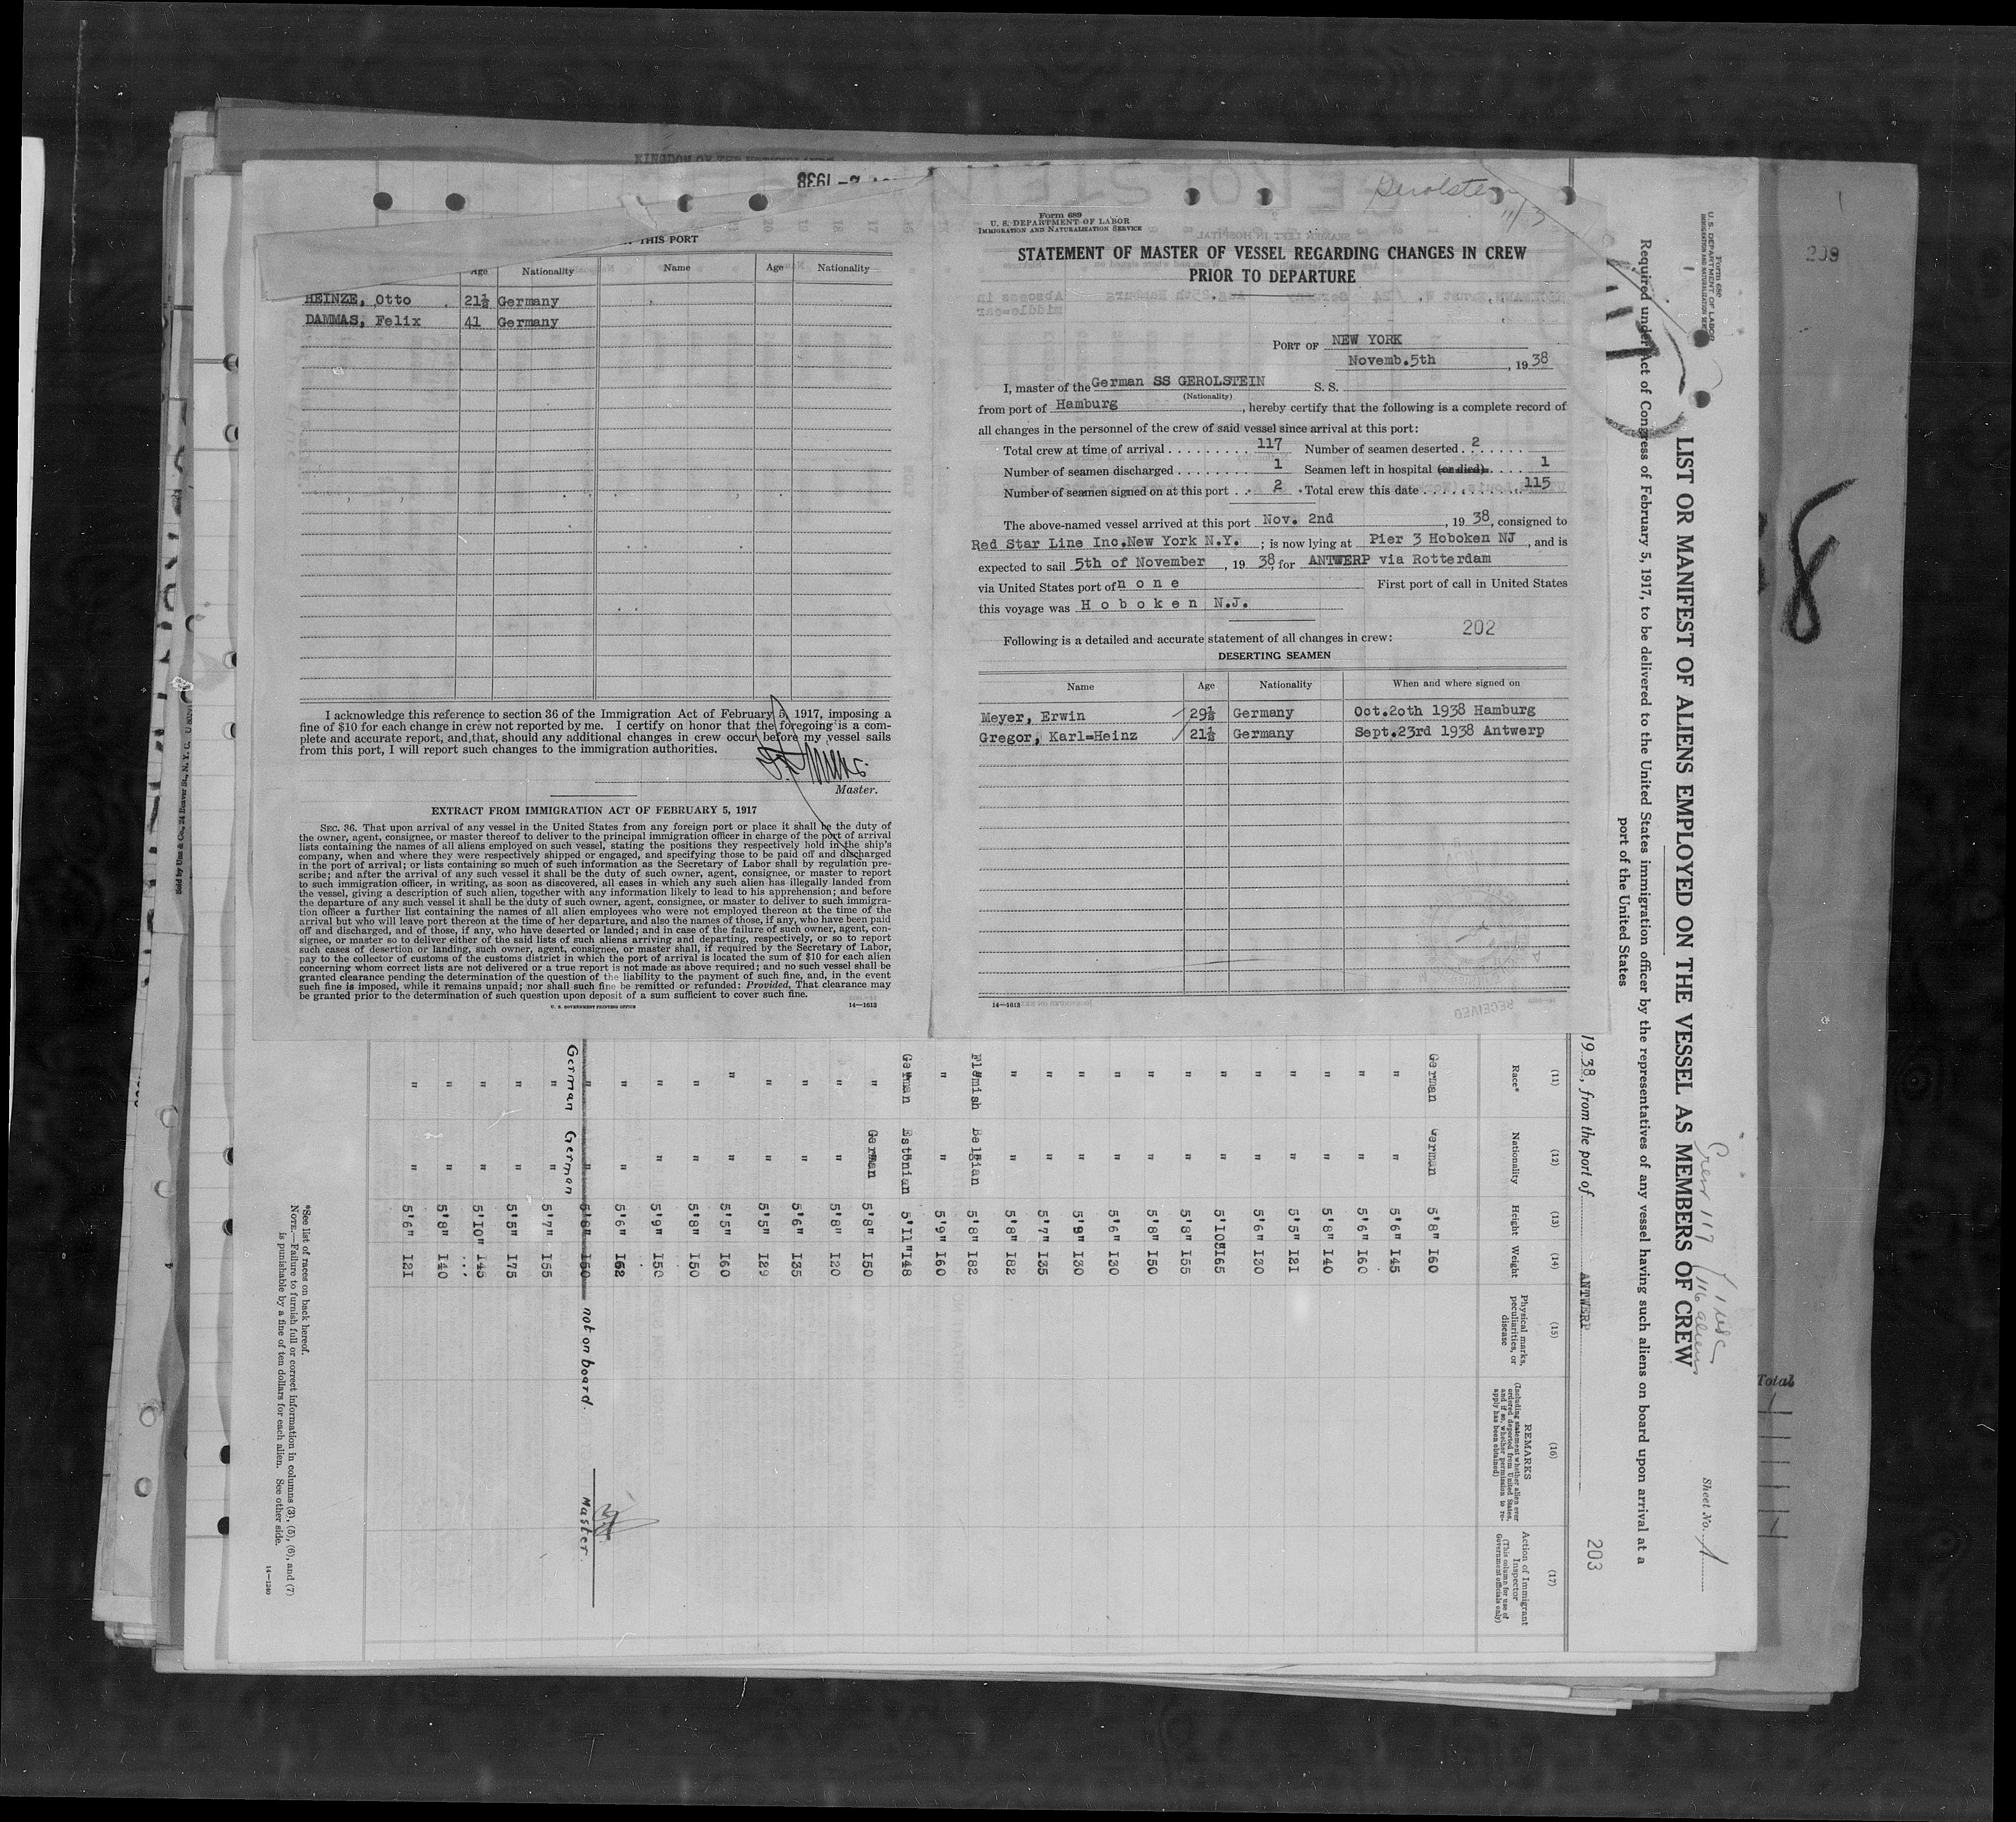 THIS PORT
Age Nationality Name Age Nationality
HEINZE, Otto 21½ Germany
DAMMAS, Felix 41 Germany
I acknowledge this reference to section 36 of the Immigration Act of February 5, 1917, imposing a
fine of $10 for each change in crew not reported by me. I certify on honor that the foregoing is a com-
plete and accurate report, and that, should any additional changes in crew occur before my vessel sails
from this port, I will report such changes to the immigration authorities.
Master.
EXTRACT FROM IMMIGRATION ACT OF FEBRUARY 5, 1917
SEC. 36. That upon arrival of any vessel in the United States from any foreign port or place it shall be the duty of
the owner, agent, consignee, or master thereof to deliver to the principal immigration officer in charge of the port of arrival
lists containing the names of all aliens employed on such vessel, stating the positions they respectively hold in the ship's
company, when and where they were respectively shipped or engaged, and specifying those to be paid off and discharged
in the port of arrival; or lists containing so much of such information as the Secretary of Labor shall by regulation pre-
scribe; and after the arrival of any such vessel it shall be the duty of such owner, agent, consignee, or master to report
to such immigration officer, in writing, as soon as discovered, all cases in which any such alien has illegally landed from
the vessel, giving a description of such alien, together with any information likely to lead to his apprehension; and before
the departure of any such vessel it shall be the duty of such owner, agent, consignee, or master to deliver to such immigra-
tion officer a further list containing the names of all alien employees who were not employed thereon at the time of the
arrival but who will leave port thereon at the time of her departure, and also the names of those, if any, who have been paid
off and discharged, and of those, if any, who have deserted or landed; and in case of the failure of such owner, agent, con-
signee, or master so to deliver either of the said lists of such aliens arriving and departing, respectively, or so to report
such cases of desertion or landing, such owner, agent, consignee, or master shall, if required by the Secretary of Labor,
pay to the collector of customs of the customs district in which the port of arrival is located the sum of $10 for each alien
concerning whom correct lists are not delivered or a true report is not made as above required; and no such vessel shall be
granted clearance pending the determination of the question of the liability to the payment of such fine, and, in the event
such fine is imposed, while it remains unpaid; nor shall such fine be remitted or refunded: Provided, That clearance may
be granted prior to the determination of such question upon deposit of a sum sufficient to cover such fine.
U. S. GOVERNMENT PRINTING OFFICE 14—1613
Gerolstein
11/3
Form 689
U. S. DEPARTMENT OF LABOR
IMMIGRATION AND NATURALIZATION SERVICE
STATEMENT OF MASTER OF VESSEL REGARDING CHANGES IN CREW
PRIOR TO DEPARTURE
PORT OF NEW YORK
Novemb.5th, 1938
I, master of the German SS GEROLSTEIN S. S.
(Nationality)
from port of Hamburg, hereby certify that the following is a complete record of
all changes in the personnel of the crew of said vessel since arrival at this port:
Total crew at time of arrival 117 Number of seamen deserted 2
Number of seamen discharged 1 Seamen left in hospital (or died) 1
Number of seamen signed on at this port 2 Total crew this date 115
The above-named vessel arrived at this port Nov. 2nd, 1938, consigned to
Red Star Line Inc.New York N.Y.; is now lying at Pier 3 Hoboken NJ, and is
expected to sail 5th of November, 1938, for ANTWERP via Rotterdam
via United States port of n o n e First port of call in United States
this voyage was H o b o k e n N.J.
Following is a detailed and accurate statement of all changes in crew: 202
DESERTING SEAMEN
Name Age Nationality When and where signed on
Meyer, Erwin 29½ Germany Oct.2oth 1938 Hamburg
Gregor, Karl=Heinz 21½ Germany Sept.23rd 1938 Antwerp
14—1613
RECEIVED
Form 680
U. S. DEPARTMENT OF LABOR
Sheet No. 1
Crew 117
1 USC
116 aliens
LIST OR MANIFEST OF ALIENS EMPLOYED ON THE VESSEL AS MEMBERS OF CREW
Required under Act of Congress of February 5, 1917, to be delivered to the United States immigration officer by the representatives of any vessel having such aliens on board upon arrival at a
port of the United States
1938, from the port of ANTWERP
203
(11) (12) (13) (14) (15) (16) (17)
Race* Nationality Height Weight Physical marks, peculiarities, or disease REMARKS (Including statement whether alien ever ordered deported from United States, and if so, whether permission to re-apply has been obtained) Action of Immigrant Inspector (This column for use of Government officials only)
German German 5'8" 160
" " 5'6" 145
" " 5'6" 160
" " 5'8" 140
" " 5'5" 121
" " 5'6" 130
" " 5'10" 165
" " 5'8" 155
" " 5'8" 150
" " 5'6" 130
" " 5'9" 130
" " 5'7" 135
" " 5'8" 182
Flemish Belgian 5'8" 182
" " 5'9" 160
German Estonian 5'11" 148
" German 5'8" 150
" " 5'8" 120
" " 5'6" 135
" " 5'5" 129
" " 5'5" 160
" " 5'8" 150
" " 5'9" 150
" " 5'6" 162
" " 5'8" 150 not on board. Master.
German German
" " 5'7" 155
" " 5'5" 175
" " 5'10" 145
" " 5'8" 140
" " 5'6" 121
*See list of races on back hereof.
NOTE.—Failure to furnish full or correct information in columns (3), (5), (6), and (7)
is punishable by a fine of ten dollars for each alien. See other side.
14—1240
209
8
Total